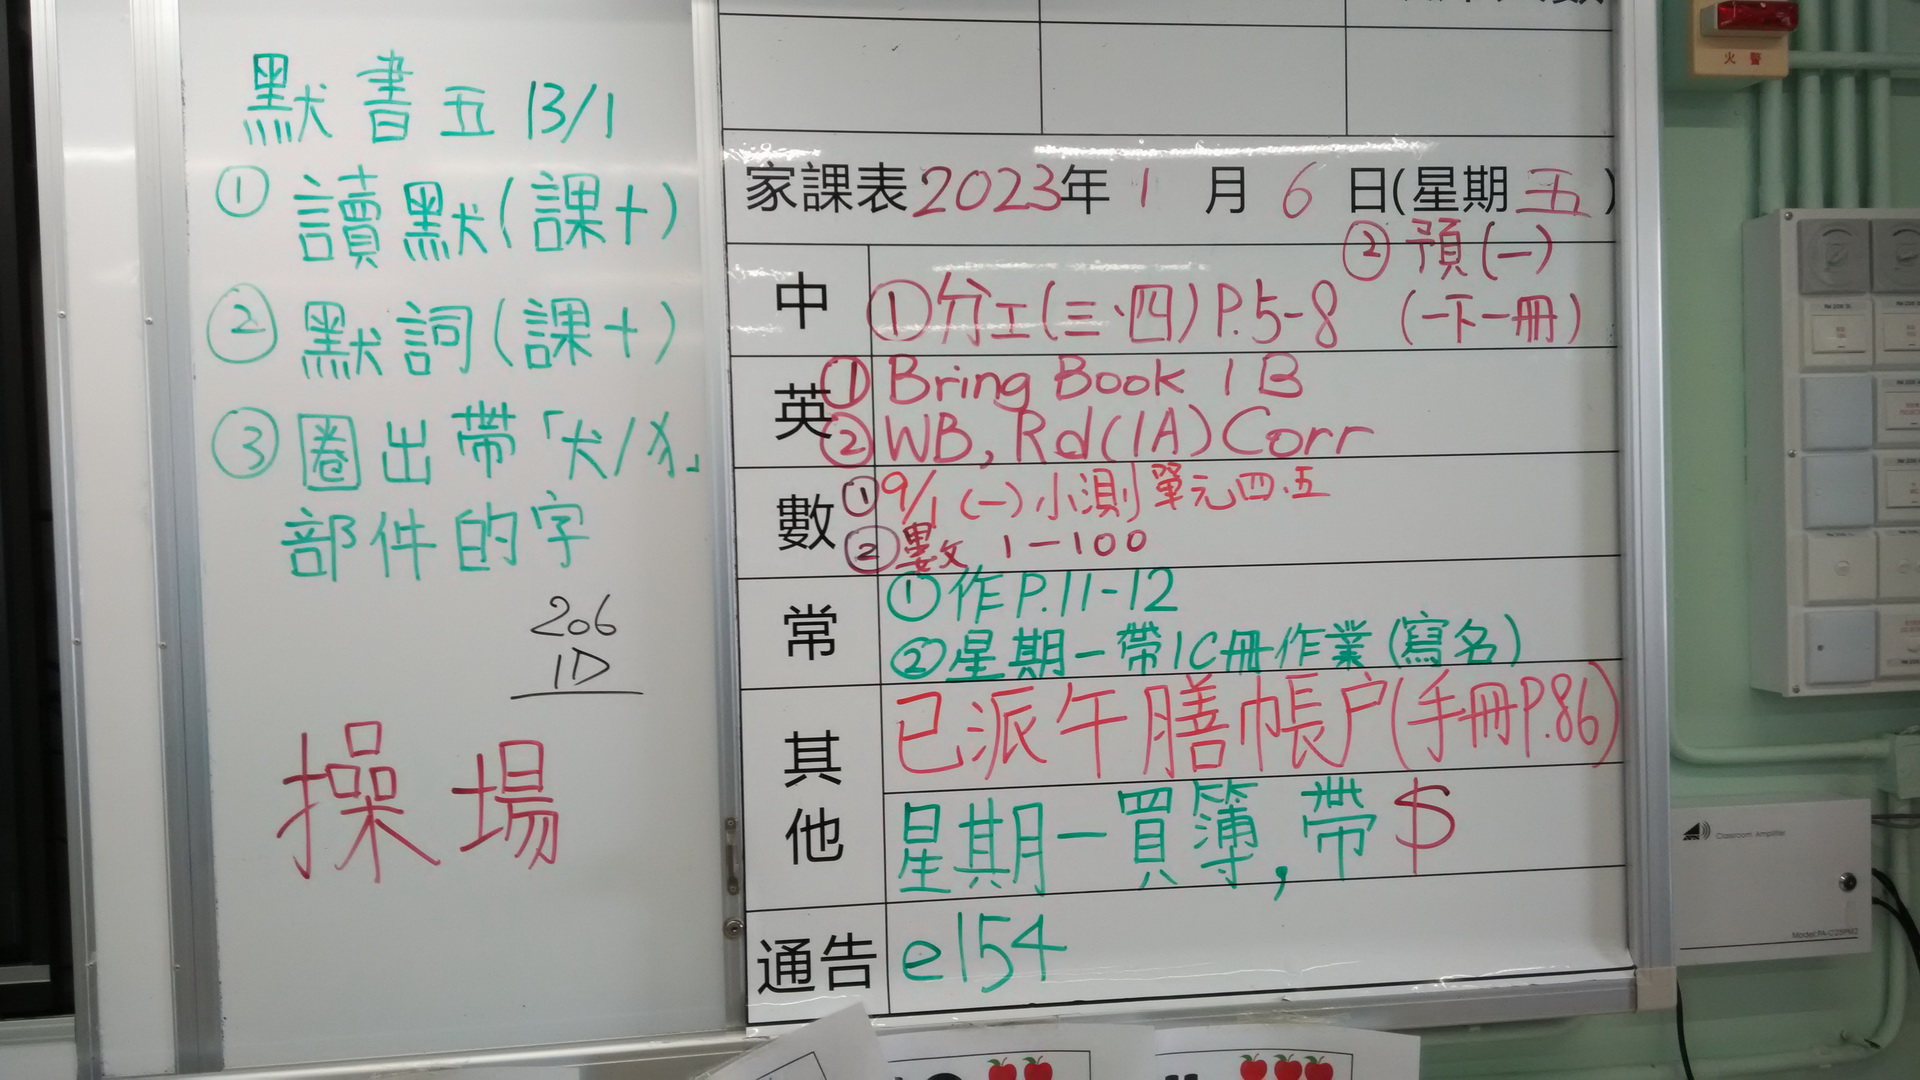 默書五 13/1
① 讀默(課十)
② 默詞(課十)
③ 圈出帶「犬/犭」
部件的字
206
1D
操場
家課表2023年1月6日(星期五)
中
①分工(三、四)P.5-8
②預(一)
(一下一冊)
英
①Bring Book 1B
②WB, Rd(1A)Corr
數
①9/1(一)小測單元四、五
②數 1-100
常
①作P.11-12
②星期一帶1C冊作業(寫名)
其他
已派午膳帳户(手冊P.86)
星期一買簿,帶$
通告
e154
火警
Classroom Amplifier